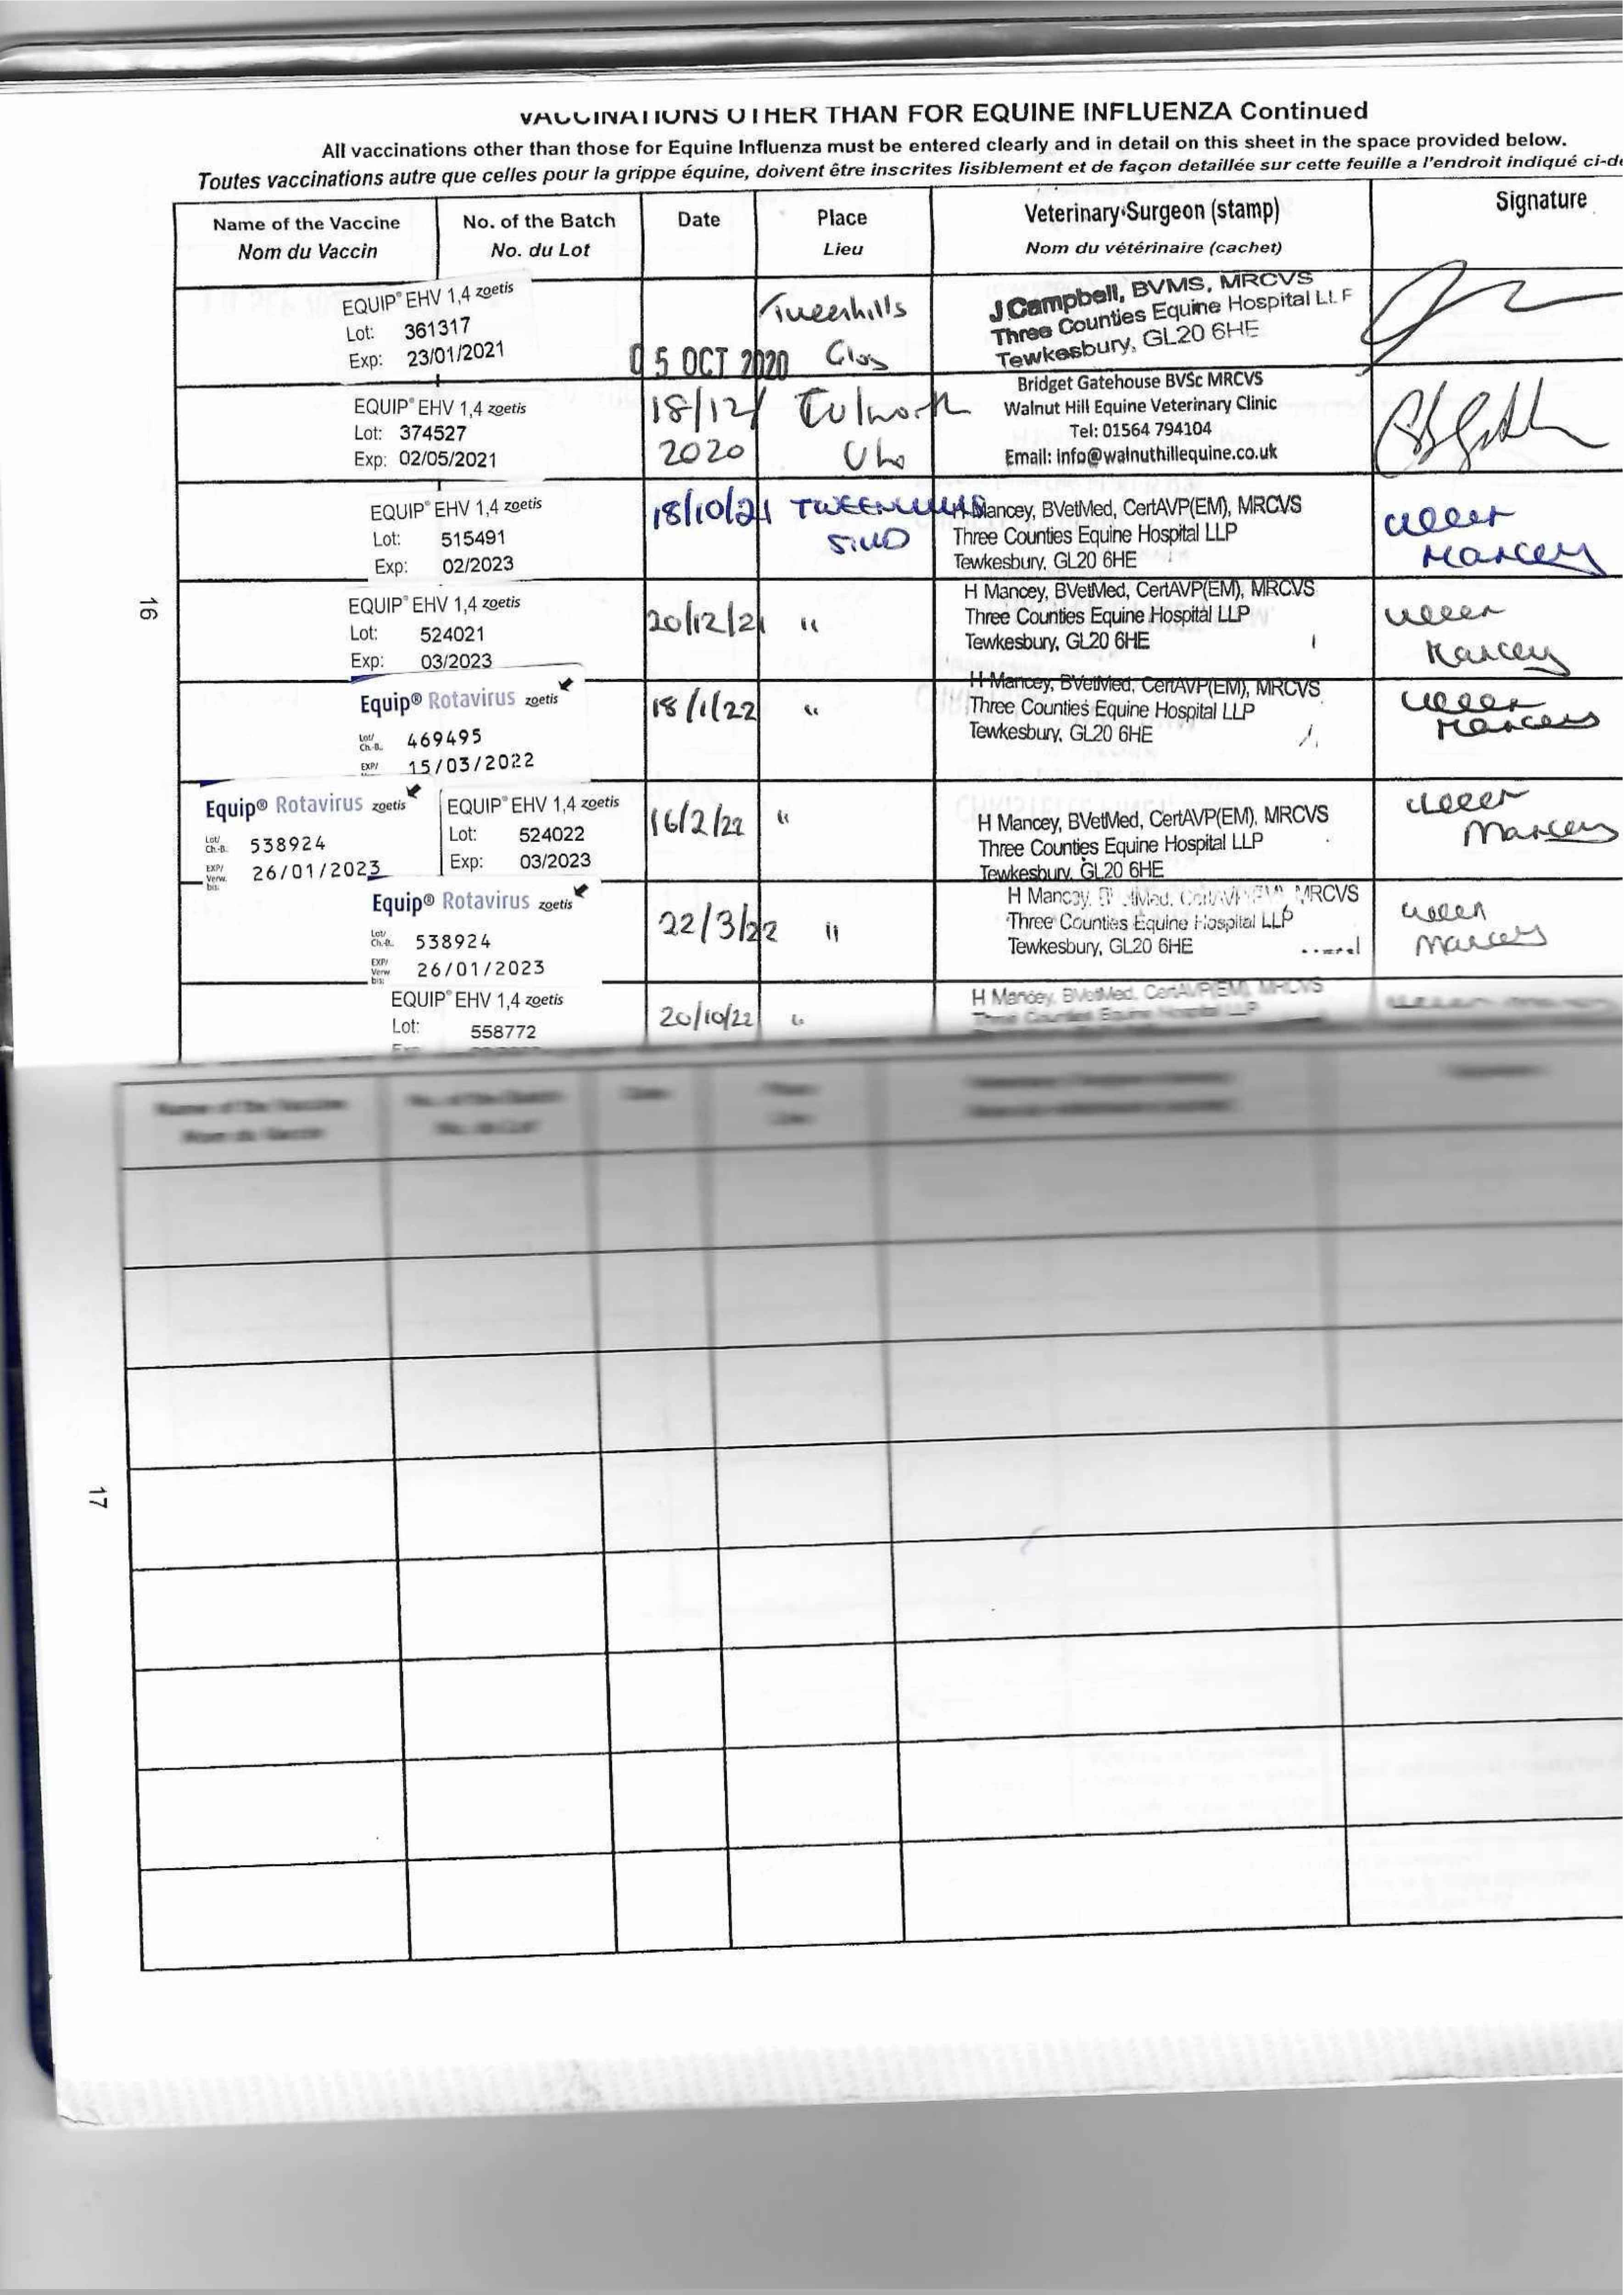 VACCINATIONS OTHER THAN FOR EQUINE INFLUENZA Continued
All vaccinations other than those for Equine Influenza must be entered clearly and in detail on this sheet in the space provided below.
Toutes vaccinations autre que celles pour la grippe équine, doivent être inscrites lisiblement et de façon detaillée sur cette feuille a l'endroit indiqué ci-de
Name of the Vaccine
Nom du Vaccin
No. of the Batch
No. du Lot
Date
Place
Lieu
Veterinary Surgeon (stamp)
Nom du vétérinaire (cachet)
Signature
EQUIP® EHV 1,4 zoetis
Lot: 361317
Exp: 23/01/2021
05 OCT 2020
Tweenhills
Glos
J Campbell, BVMS, MRCVS
Three Counties Equine Hospital LLP
Tewkesbury, GL20 6HE
EQUIP® EHV 1,4 zoetis
Lot: 374527
Exp: 02/05/2021
18/12/
2020
Culworth
Bridget Gatehouse BVSc MRCVS
Walnut Hill Equine Veterinary Clinic
Tel: 01564 794104
Email: info@walnuthillequine.co.uk
EQUIP® EHV 1,4 zoetis
Lot: 515491
Exp: 02/2023
18/10/21
TWEENHILLS
STUD
H Mancey, BVetMed, CertAVP(EM), MRCVS
Three Counties Equine Hospital LLP
Tewkesbury, GL20 6HE
Mancey
16
EQUIP® EHV 1,4 zoetis
Lot: 524021
Exp: 03/2023
20/12/21
"
H Mancey, BVetMed, CertAVP(EM), MRCVS
Three Counties Equine Hospital LLP
Tewkesbury, GL20 6HE
Mancey
Equip® Rotavirus zoetis
Lot/
Ch.-B. 469495
EXP/ 15/03/2022
18/1/22
"
H Mancey, BVetMed, CertAVP(EM), MRCVS
Three Counties Equine Hospital LLP
Tewkesbury, GL20 6HE
Mancey
Equip® Rotavirus zoetis
Lot/
Ch.-B. 538924
EXP/
Verw.
bis: 26/01/2023
EQUIP® EHV 1,4 zoetis
Lot: 524022
Exp: 03/2023
16/2/22
"
H Mancey, BVetMed, CertAVP(EM), MRCVS
Three Counties Equine Hospital LLP
Tewkesbury, GL20 6HE
Mancey
Equip® Rotavirus zoetis
Lot/
Ch.-B. 538924
EXP/
Verw
bis: 26/01/2023
22/3/22
"
H Mancey, BVetMed, CertAVP(EM), MRCVS
Three Counties Equine Hospital LLP
Tewkesbury, GL20 6HE
Mancey
EQUIP® EHV 1,4 zoetis
Lot: 558772
Exp
20/10/22
"
H Mancey, BVetMed, CertAVP(EM), MRCVS
Three Counties Equine Hospital LLP
Name of the Vaccine
Nom du Vaccin
No. of the Batch
No. du Lot
Date
Place
Lieu
17